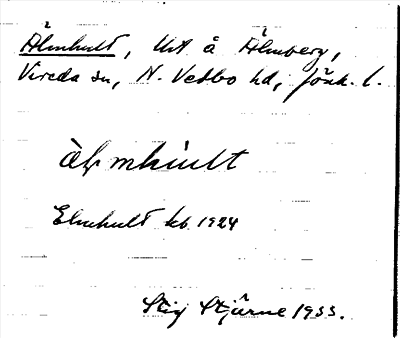 Älmhult, lht å Älmberg,
Vireda sn, N. Vedbo hd, Jönk. l.
àlmhùlt
Elmhult kb 1924
Stig Stjärne 1933.